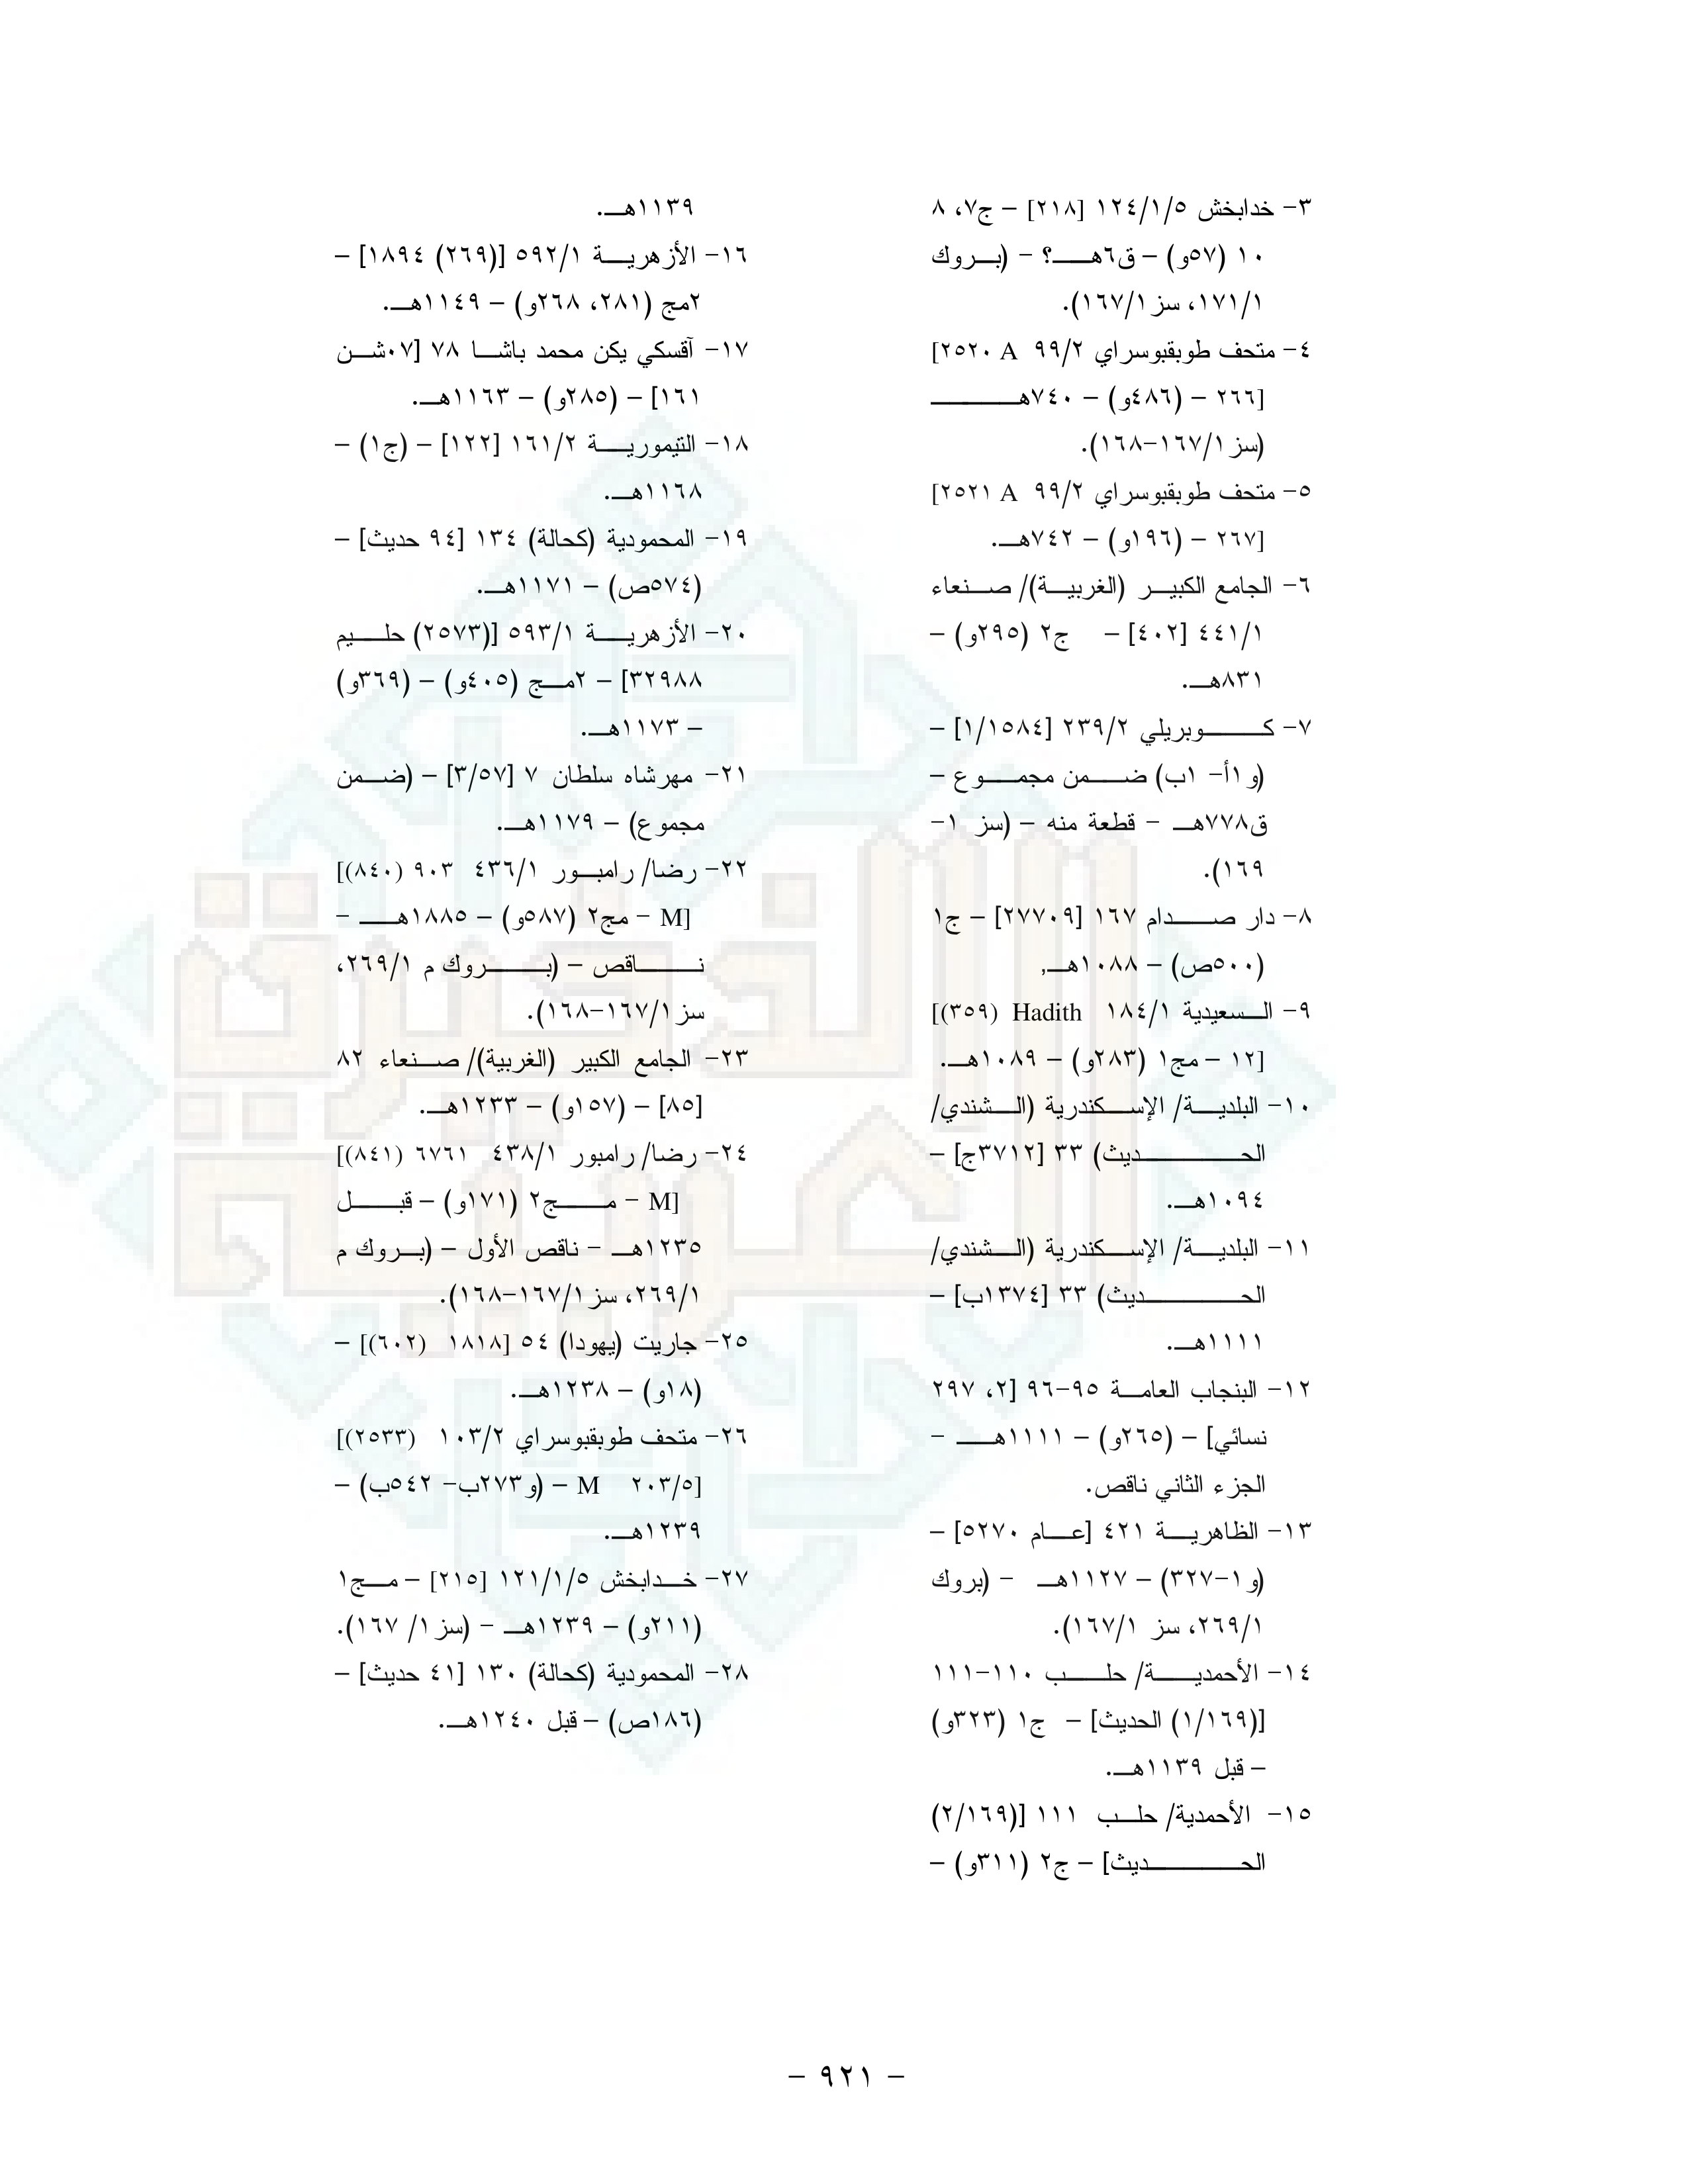 ٣- خدابخش ١٢٤/١/٥ [٢١٨] – ج٧، ٨
١٠ (٥٧و) – ق٦هـ؟ – (بروك
١٧١/١، سز ١٦٧/١).
٤- متحف طوبقبوسراي ٩٩/٢ A ٢٥٢٠]
[٢٦٦ – (٤٨٦و) – ٧٤٠هـ
(سز ١٦٧/١-١٦٨).
٥- متحف طوبقبوسراي ٩٩/٢ A ٢٥٢١]
[٢٦٧ – (١٩٦و) – ٧٤٢هـ.
٦- الجامع الكبير (الغربية)/ صنعاء
٤٤١/١ [٤٠٢] – ج٢ (٢٩٥و) –
٨٣١هـ.
٧- كوبريلي ٢٣٩/٢ [١/١٥٨٤] –
(و١أ- ١ب) ضمن مجموع –
ق٧٧٨هـ – قطعة منه – (سز ١-
١٦٩).
٨- دار صدام ١٦٧ [٢٧٧٠٩] – ج١
(٥٠٠ص) – ١٠٨٨هـ,
٩- السعيدية ١٨٤/١ Hadith (٣٥٩)]
[١٢ – مج١ (٢٨٣و) – ١٠٨٩هـ.
١٠- البلدية/ الإسكندرية (الشندي/
الحديث) ٣٣ [٣٧١٢ج] –
١٠٩٤هـ.
١١- البلدية/ الإسكندرية (الشندي/
الحديث) ٣٣ [١٣٧٤ب] –
١١١١هـ.
١٢- البنجاب العامة ٩٥-٩٦ [٢، ٢٩٧
نسائي] – (٢٦٥و) – ١١١١هـ –
الجزء الثاني ناقص.
١٣- الظاهرية ٤٢١ [عام ٥٢٧٠] –
(و١-٣٢٧) – ١١٢٧هـ – (بروك
٢٦٩/١، سز ١٦٧/١).
١٤- الأحمدية/ حلب ١١٠-١١١
[(١/١٦٩) الحديث] – ج١ (٣٢٣و)
– قبل ١١٣٩هـ.
١٥- الأحمدية/ حلب ١١١ [(٢/١٦٩)
الحديث] – ج٢ (٣١١و) –
١١٣٩هـ.
١٦- الأزهرية ٥٩٢/١ [(٢٦٩) ١٨٩٤] –
٢مج (٢٨١، ٢٦٨و) – ١١٤٩هـ.
١٧- آقسكي يكن محمد باشا ٧٨ [٠٧شن
١٦١] – (٢٨٥و) – ١١٦٣هـ.
١٨- التيمورية ١٦١/٢ [١٢٢] – (ج١) –
١١٦٨هـ.
١٩- المحمودية (كحالة) ١٣٤ [٩٤ حديث] –
(٥٧٤ص) – ١١٧١هـ.
٢٠- الأزهرية ٥٩٣/١ [(٢٥٧٣) حليم
٣٢٩٨٨] – ٢مج (٤٠٥و) – (٣٦٩و)
– ١١٧٣هـ.
٢١- مهرشاه سلطان ٧ [٣/٥٧] – (ضمن
مجموع) – ١١٧٩هـ.
٢٢- رضا/ رامبور ٤٣٦/١ ٩٠٣ (٨٤٠)]
[M – مج٢ (٥٨٧و) – ١٨٨٥هـ –
ناقص – (بروك م ٢٦٩/١،
سز ١٦٧/١-١٦٨).
٢٣- الجامع الكبير (الغربية)/ صنعاء ٨٢
[٨٥] – (١٥٧و) – ١٢٣٣هـ.
٢٤- رضا/ رامبور ٤٣٨/١ ٦٧٦١ (٨٤١)]
[M – مج٢ (١٧١و) – قبل
١٢٣٥هـ – ناقص الأول – (بروك م
٢٦٩/١، سز ١٦٧/١-١٦٨).
٢٥- جاريت (يهودا) ٥٤ [١٨١٨ (٦٠٢)] –
(١٨و) – ١٢٣٨هـ.
٢٦- متحف طوبقبوسراي ١٠٣/٢ (٢٥٣٣)]
[٢٠٣/٥ M – (و٢٧٣ب- ٥٤٢ب) –
١٢٣٩هـ.
٢٧- خدابخش ١٢١/١/٥ [٢١٥] – مج١
(٢١١و) – ١٢٣٩هـ – (سز ١/ ١٦٧).
٢٨- المحمودية (كحالة) ١٣٠ [٤١ حديث] –
(١٨٦ص) – قبل ١٢٤٠هـ.
الذخيرة
العربية
– ٩٢١ –